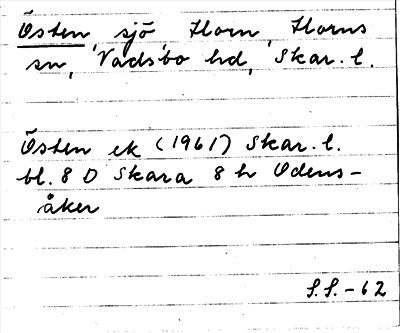 Östen, sjö, Horn, Horns
sn, Vadsbo hd, Skar. l.
Östen ek (1961) Skar. l.
bl. 8 D Skara 8 h Odens-
åker
S.S.-62